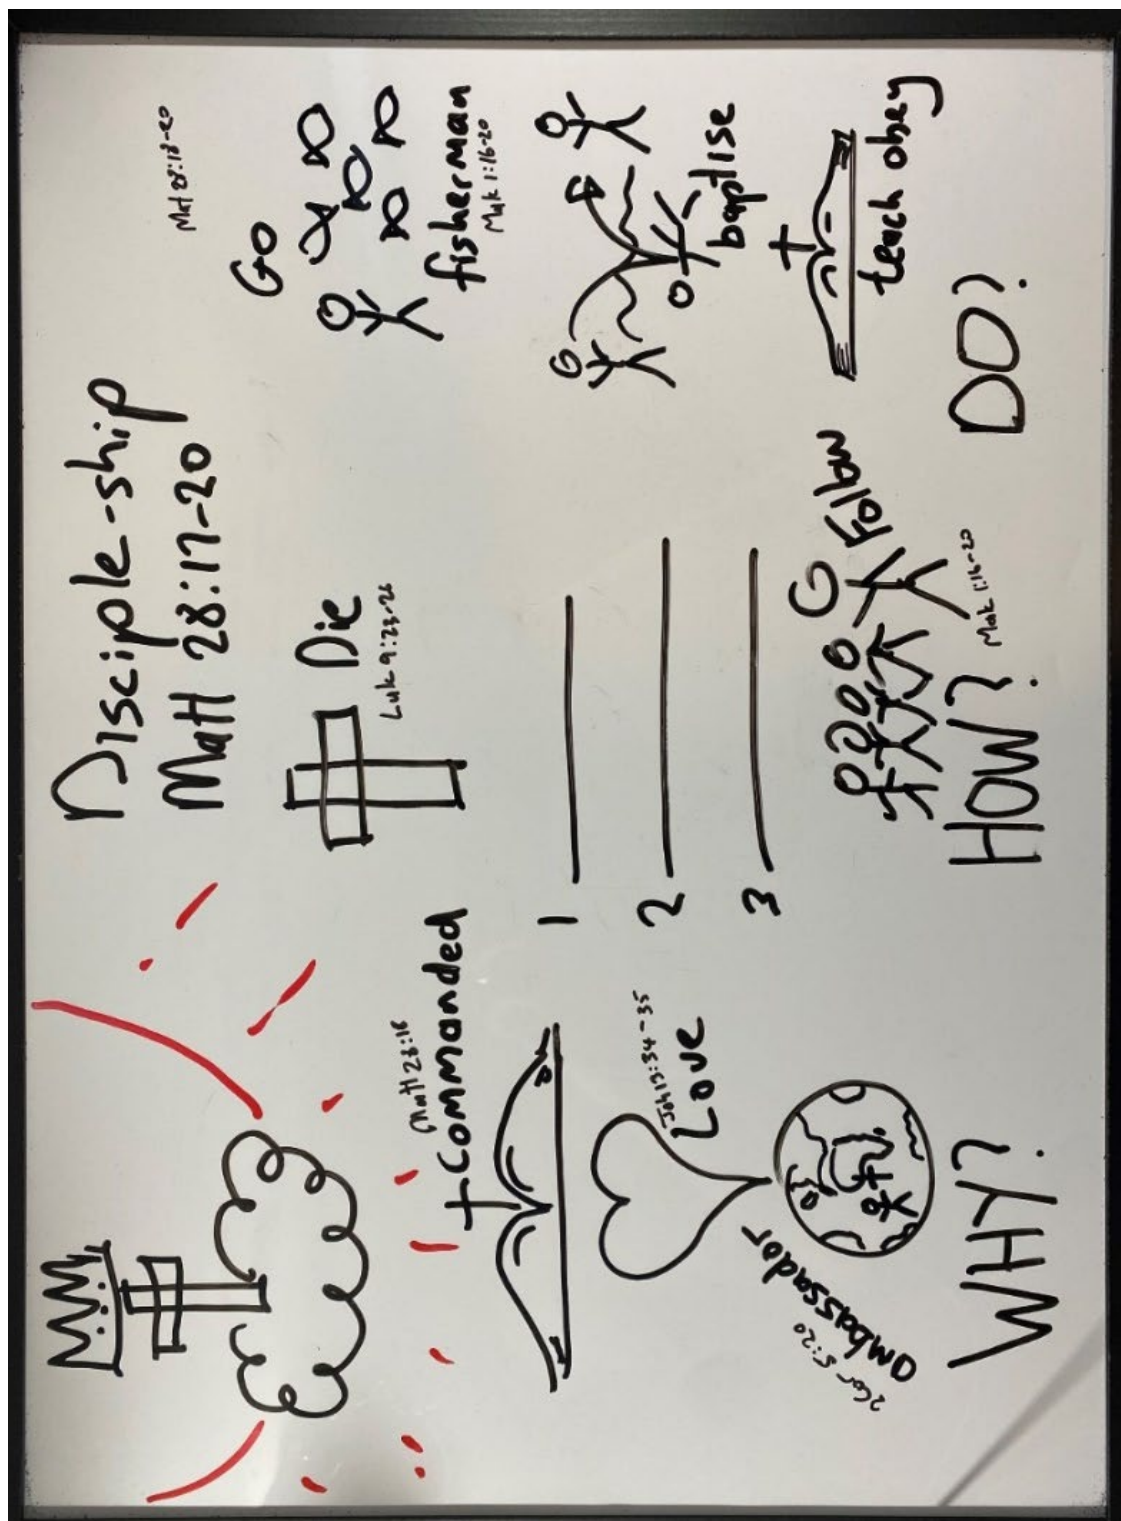 Disciple-ship
Matt 28:17-20
Matt 28:18
commanded
Joh 13:34-35
Love
2 Cor 5:20
ambassador
WHY?
Die
Luk 9:23-26
1
2
3
Follow
Mak 1:16-20
HOW?
Mat 28:18-20
GO
fisherman
Mak 1:16-20
baptise
teach obey
DO?